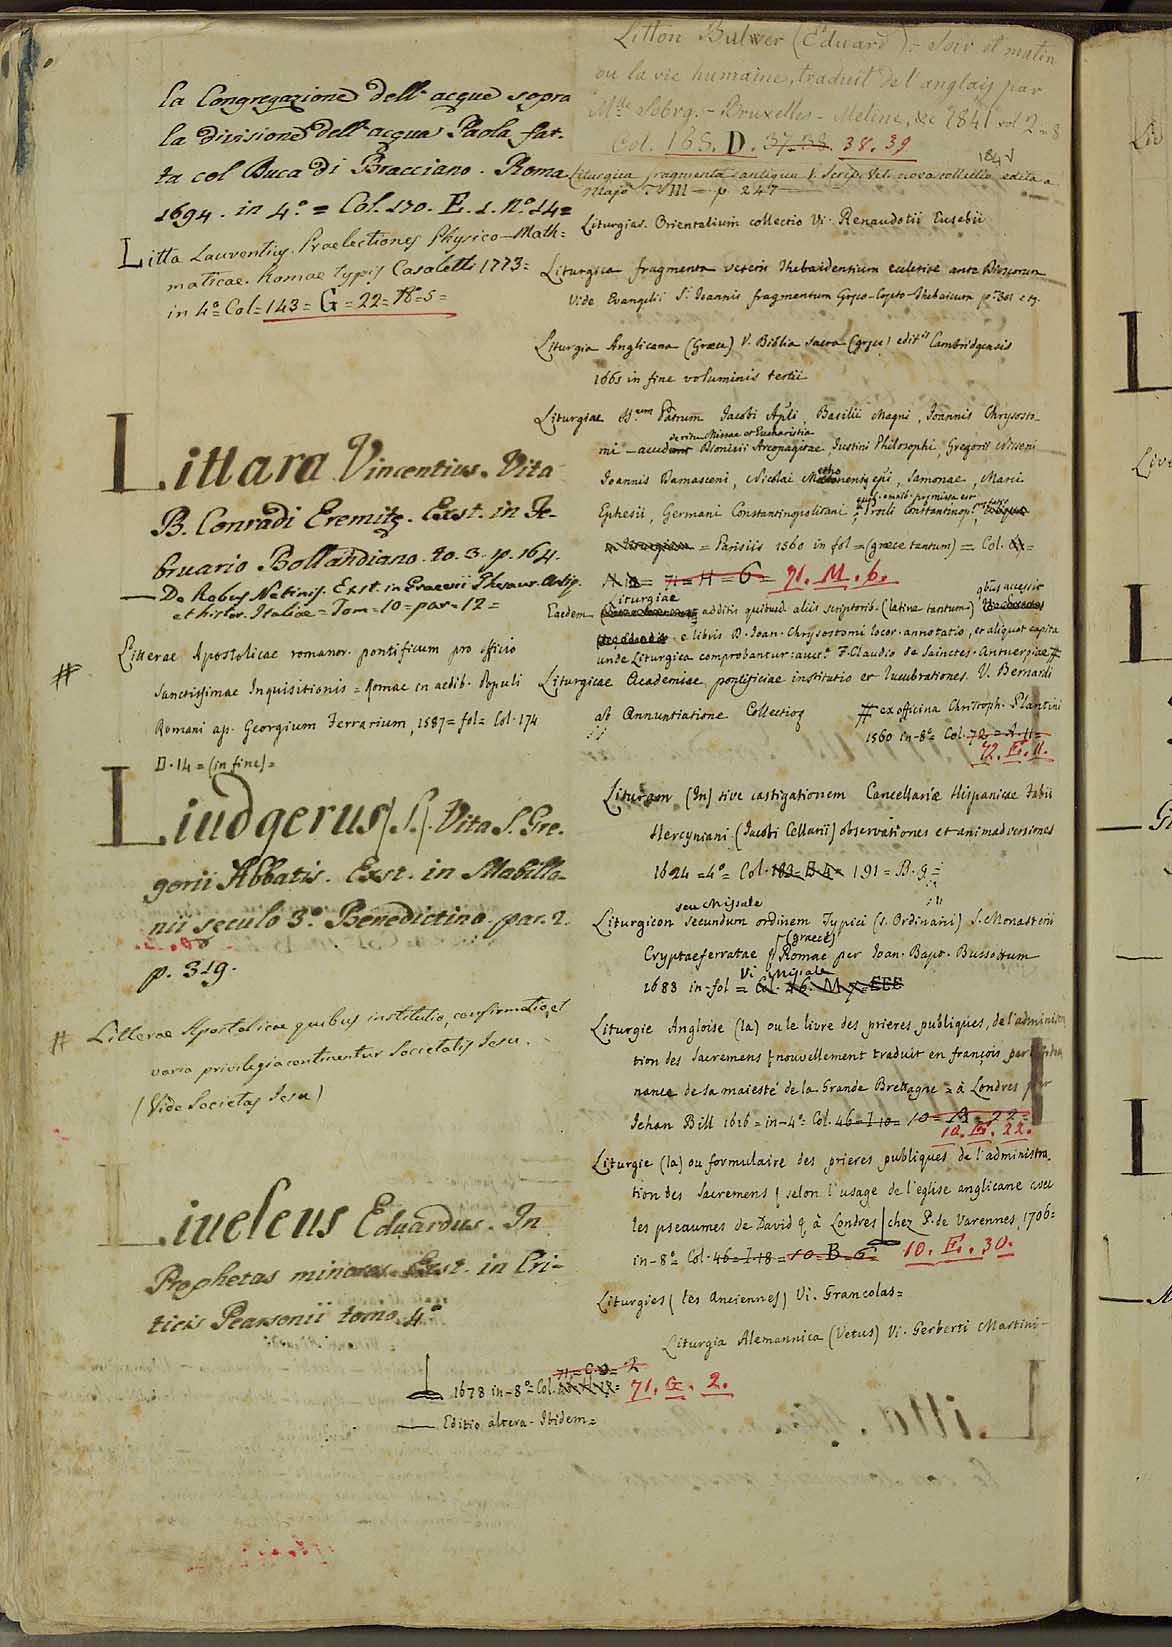 la Congregazione dell' acque sopra
la divisione dell' acqua Paola fat-
ta col Duca di Bracciano. Roma
1694. in 4.º = Col. 170. E. 1. N.º 14=
Litta Laurentius. Praelectiones Physico-Math=
maticae. Romae typis Casaletti 1773=
in 4.º Col=143= G=22= Nº=5=
Littara Vincentius. Vita
B. Conradi Eremitę. Exst. in Fe-
bruario Bollandiano. to. 3. p. 164.
— De Rebus Netinis. Exst. in Graevii Thesaur. Antiq.
et histor. Italiae = Tom=10=par=12=
# Litterae Apostolicae romanor. pontificum pro officio
Sanctissimae Inquisitionis = Romae in aedib. Populi
Romani ap. Georgium Ferrarium, 1587= fol= Col. 174
D. 14 = (in fine)=
Liudgerus (S.). Vita S. Gre-
gorii Abbatis. Exst. in Mabillo-
nii seculo 3.º Benedictino. par. 2.
p. 319.
# Litterae Apostolicae quibus institutio, confirmatio, et
varia privilegia continentur Societatis Jesu.
(Vide Societas Jesu)
Liveleus Eduardus. In
Prophetas minores. Exst. in Cri-
ticis Pearsonii tomo. 4.º
Litton Bulwer (Eduard) = Soir et matin
ou la vie humaine, traduit de l'anglais par
Mlle Sobry. - Bruxelles - Meline, &c 1841 vol 2 = 8
Col. 165. D. 37.38. 38. 39
Liturgica fragmenta antiqua V. Scrip. Vet. nova collectio edita a
Majo T. VIII — p. 247
Liturgias. Orientalium collectio Vi. Renaudotii Eusebii
Liturgica fragmenta veteris Thebaidentium ecclesiae ante Dioscorum
Vide Evangelii S. Joannis fragmentum Gręco-Copto-Thebaicum pag. 301 et sq.
Liturgia Anglicana (Graece) V. Biblia Sacra (gręce) edit.is Cambridgensis
1665 in fine voluminis tertii
Liturgiae SS.rum Patrum Jacobi Apli, Basilii Magni, Joannis Chrysosto-
de ritu Missae et Eucharistia
mi — accedunt Dionisii Areopagitae, Justini Philosophi, Gregorii Nisseni
Joannis Damasceni, Nicolai Methonensis epii, Samonae, Marci
Ephesii, Germani Constantinopolitani, Procli Constantinop.
= Parisiis 1560 in fol = (graece tantum) = Col.
71=H=6= 71. M. 6.
Liturgiae
Eaedem additis quibusd. aliis scriptorib. (latine tantum) qbus accessit
e libris D. Joan. Chrysostomi locor. annotatio, et aliquot capita
unde Liturgica comprobantur: auct.e F. Claudio de Sainctes. Antuerpiae #
Liturgicae Academiae pontificiae institutio et lucubrationes. V. Bernardi
ab Annuntiatione Collectioq # ex officina Christoph. Plantini
1560 in-8º= Col. 72=A=11=
72. E. 11.
Liturgon (In) sive castigationem Cancellariae Hispanicae Fabii
Hercyniani (Jacobi Cellarii) observationes et animadversiones
1624 =4º= Col. 182=B.4= 191 = B. 9=
seu Missale
Liturgicon secundum ordinem Typici (s. Ordinarii) S. Monasterii
(graece)
Cryptaeferratae Romae per Joan. Bapt. Bussottum
Vi. Missale
1683 in-fol =
Liturgie Angloise (la) ou le livre des prieres publiques, de l'administra-
tion des Sacremens &c nouvellement traduit en françois par l'ordon-
nance de sa maiesté de la Grande Brettagne = à Londres par
Jehan Bill 1616 = in-4º= Col. 46=I.10= 10=A=22=
10. E. 22.
Liturgie (la) ou formulaire des prieres publiques de l'administra-
tion des Sacremens &c selon l'usage de l'eglise anglicane avec
les pseaumes de David &c à Londres chez P. de Varennes, 1706=
in-8º Col. 46=I.18=10=B=6= 10. E. 30.
Liturgies (les anciennes) Vi. Grancolas=
Liturgia Alemannica (Vetus) Vi. Gerberti Martini-
71=G=2=
1678 in-8º= Col. 71. G. 2.
— Editio altera. Ibidem=